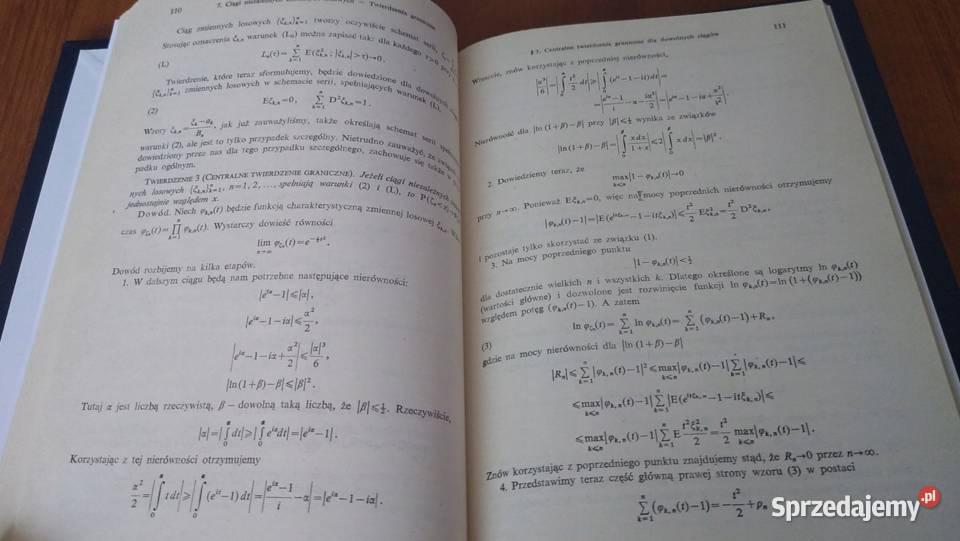 110
Ciąg zmiennych losowych {ξₖ,ₙ}ⁿₖ₌₁ tworzy oczywiście schemat serii,
Stosując oznaczenia ζₖ,ₙ warunek (L₀) można zapisać tak: dla każdego τ>0 przy
(L) Lₙ(τ)= ∑ⁿₖ₌₁ E(ζ²ₖ,ₙ; |ζₖ,ₙ|>τ)→0.
Twierdzenie, które teraz sformułujemy, będzie dowiedzione dla dowolnych
{ξₖ,ₙ}ⁿₖ₌₁ zmiennych losowych w schemacie serii, spełniających warunek (L),
(2) Eξₖ,ₙ=0, ∑ⁿₖ₌₁ D²ξₖ,ₙ=1.
Wzory ζₖ,ₙ=(ξₖ−aₖ)/Bₙ, jak już zauważyliśmy, także określają schemat serii
warunki (2), ale jest to tylko przypadek szczególny. Nietrudno zauważyć, że
dowiedziony przez nas dla tego przypadku szczególnego, zachowuje się także w
padku ogólnym.
TWIERDZENIE 3 (CENTRALNE TWIERDZENIE GRANICZNE). Jeżeli ciągi niezależnych
nych losowych {ξₖ,ₙ}ⁿₖ₌₁, n=1, 2, ..., spełniają warunki (2) i (L), to
jednostajnie względem x.
Dowód. Niech φₖ,ₙ(t) będzie funkcją charakterystyczną zmiennej losowej ξₖ,ₙ.
czas φ_ζₙ(t)= ∏ⁿₖ₌₁ φₖ,ₙ(t). Wystarczy dowieść równości
lim_{n→∞} φ_ζₙ(t)=e^{−½t²}.
Dowód rozbijemy na kilka etapów.
1. W dalszym ciągu będą nam potrzebne następujące nierówności:
|e^{iα}−1|⩽|α|,
|e^{iα}−1−iα|⩽α²/2,
|e^{iα}−1−iα+α²/2|⩽|α|³/6,
|ln(1+β)−β|⩽|β|².
Tutaj α jest liczbą rzeczywistą, β − dowolną taką liczbą, że |β|⩽½. Rzeczywiście,
|α|=|∫₀^α dt|⩾|∫₀^α e^{it}dt|=|e^{iα}−1|.
Korzystając z tej nierówności otrzymujemy
α²/2=|∫₀^α t dt|⩾|∫₀^α (e^{it}−1) dt|=|(e^{iα}−1)/i−α|=|e^{iα}−1−iα|.
§ 3. Centralne twierdzenie graniczne dla dowolnych ciągów 111
Wreszcie, znów korzystając z poprzedniej nierówności,
|α³/6|=|∫₀^α t²/2 dt|⩾|∫₀^α (e^{it}−1−it)dt|=
=|(e^{iα}−1)/i−α−iα²/2|=|e^{iα}−1−iα+α²/2|.
Nierówność dla |ln(1+β)−β| przy |β|⩽½ wynika ze związków
|ln(1+β)−β|=|∫₀^β x dx/(1+x)|⩽2|∫₀^β x dx|=|β|².
2. Dowiedziemy teraz, że
max_{k⩽n}|1−φₖ,ₙ(t)|→0
przy n→∞. Ponieważ Eξₖ,ₙ=0, więc na mocy poprzednich nierówności otrzymujemy
|φₖ,ₙ(t)−1|=|E(e^{itξₖ,ₙ}−1−itξₖ,ₙ)|⩽t²/2 Eξ²ₖ,ₙ=t²/2 D²ξₖ,ₙ,
i pozostaje tylko skorzystać ze związku (1).
3. Na mocy poprzedniego punktu
|1−φₖ,ₙ(t)|<½
dla dostatecznie wielkich n i wszystkich k. Dlatego określone są logarytmy ln φₖ,ₙ(t)
(wartości główne) i dozwolone jest rozwinięcie funkcji ln φₖ,ₙ(t)=ln(1+(φₖ,ₙ(t)−1))
względem potęg (φₖ,ₙ(t)−1). A zatem
(3) ln φ_ζₙ(t)= ∑ⁿₖ₌₁ ln φₖ,ₙ(t)= ∑ⁿₖ₌₁ (φₖ,ₙ(t)−1)+Rₙ,
gdzie na mocy nierówności dla |ln(1+β)−β|
|Rₙ|⩽ ∑ⁿₖ₌₁ |φₖ,ₙ(t)−1|²⩽max_{k⩽n}|φₖ,ₙ(t)−1| ∑ⁿₖ₌₁ |φₖ,ₙ(t)−1|⩽
⩽max_{k⩽n}|φₖ,ₙ(t)−1| ∑ⁿₖ₌₁ |E(e^{itξₖ,ₙ}−1−itξₖ,ₙ)|⩽
⩽max_{k⩽n}|φₖ,ₙ(t)−1| ∑ⁿₖ₌₁ E t²ξ²ₖ,ₙ/2=t²/2 max_{k⩽n}|φₖ,ₙ(t)−1|.
Znów korzystając z poprzedniego punktu znajdujemy stąd, że Rₙ→0 przez n→∞.
4. Przedstawimy teraz część główną prawej strony wzoru (3) w postaci
∑ⁿₖ₌₁ (φₖ,ₙ(t)−1)=−t²/2+ρₙ
Sprzedajemy.pl